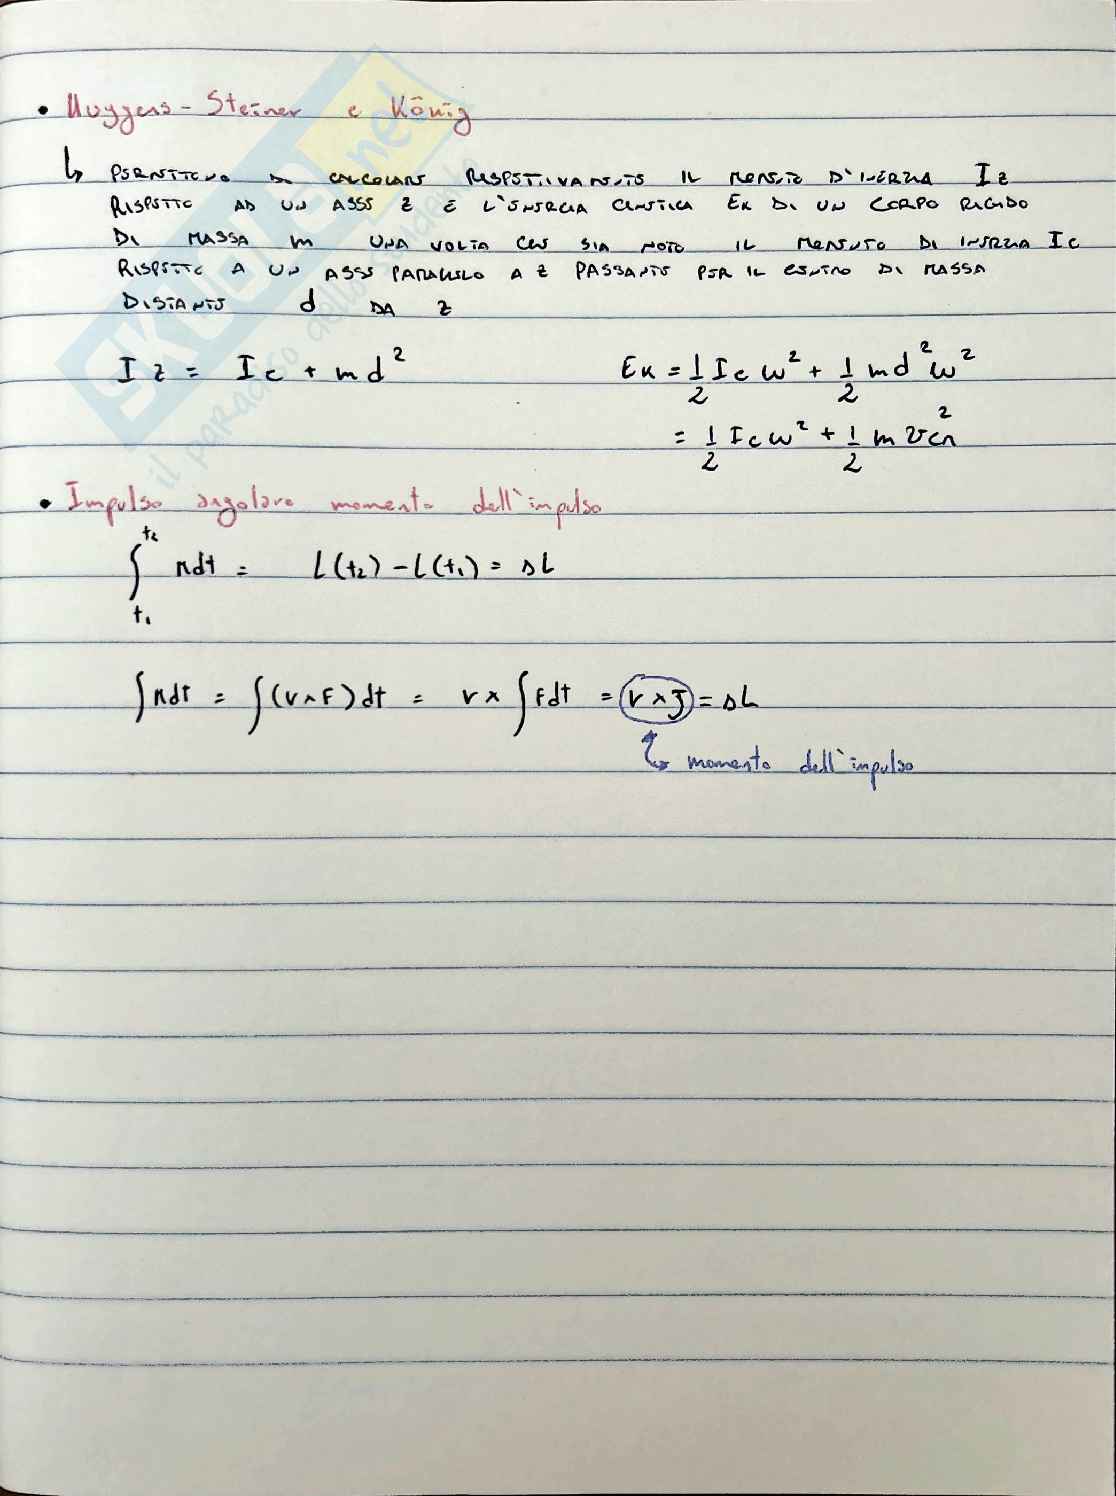 • Huygens - Steiner e König
↳ PERMETTONO DI CALCOLARE RISPETTIVAMENTE IL MOMENTO D'INERZIA Iz
RISPETTO AD UN ASSE Z E L'ENERGIA CINETICA Ek DI UN CORPO RIGIDO
DI MASSA m UNA VOLTA CHE SIA NOTO IL MOMENTO DI INERZIA Ic
RISPETTO A UN ASSE PARALLELO A Z PASSANTE PER IL CENTRO DI MASSA
DISTANTE d DA Z
Iz = Ic + md² Ek = 1/2 Ic ω² + 1/2 md²ω²
= 1/2 Ic ω² + 1/2 m vcm²
• Impulso angolare momento dell'impulso
∫t₁^t₂ Mdt = L(t₂) - L(t₁) = ΔL
∫Mdt = ∫(r×F)dt = r × ∫Fdt = r×J = ΔL
momento dell'impulso
SKUOLA.net
il paradiso dello studente